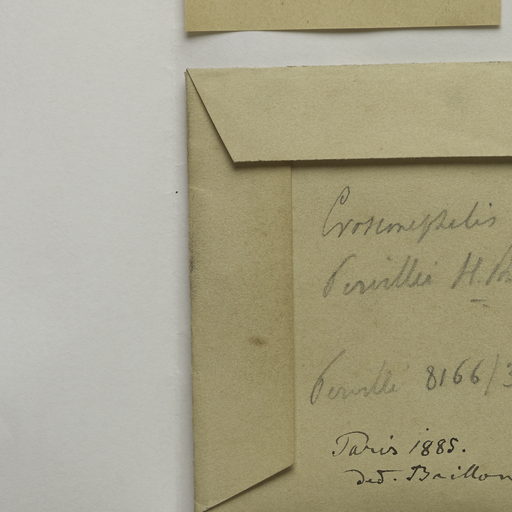 Crossonephelis
Pervillei H. B
Pervillé 8166/3
Paris 1885.
ded. Baillon